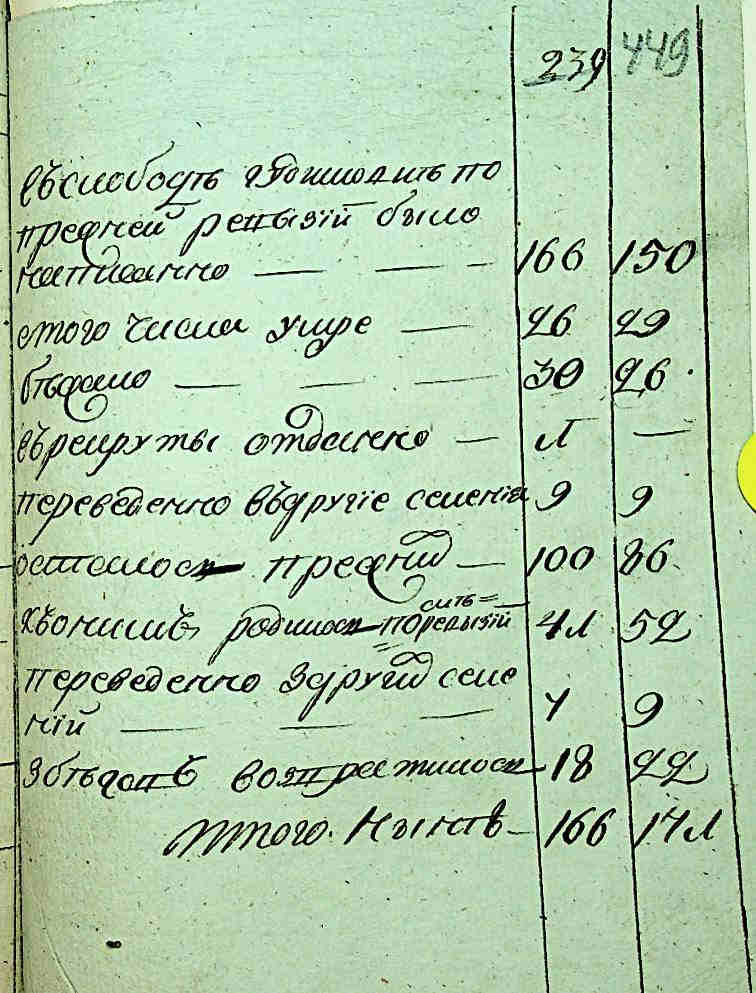 239 449
въ слободѣ по
прежней ревизій было
написанно — — — 166 150
стого числа умре — 26 29
бѣжало — — — 30 26
въ рекруты отданно — 1 —
переведенно въ другіе селенія 9 9
осталось прежнихъ — 100 86
къ онимъ родилось по ревизій 41 52
переведенно здругихъ селе
ній — — — 7 9
збѣговъ возвратилось 18 22
Итого нынѣ — 166 171